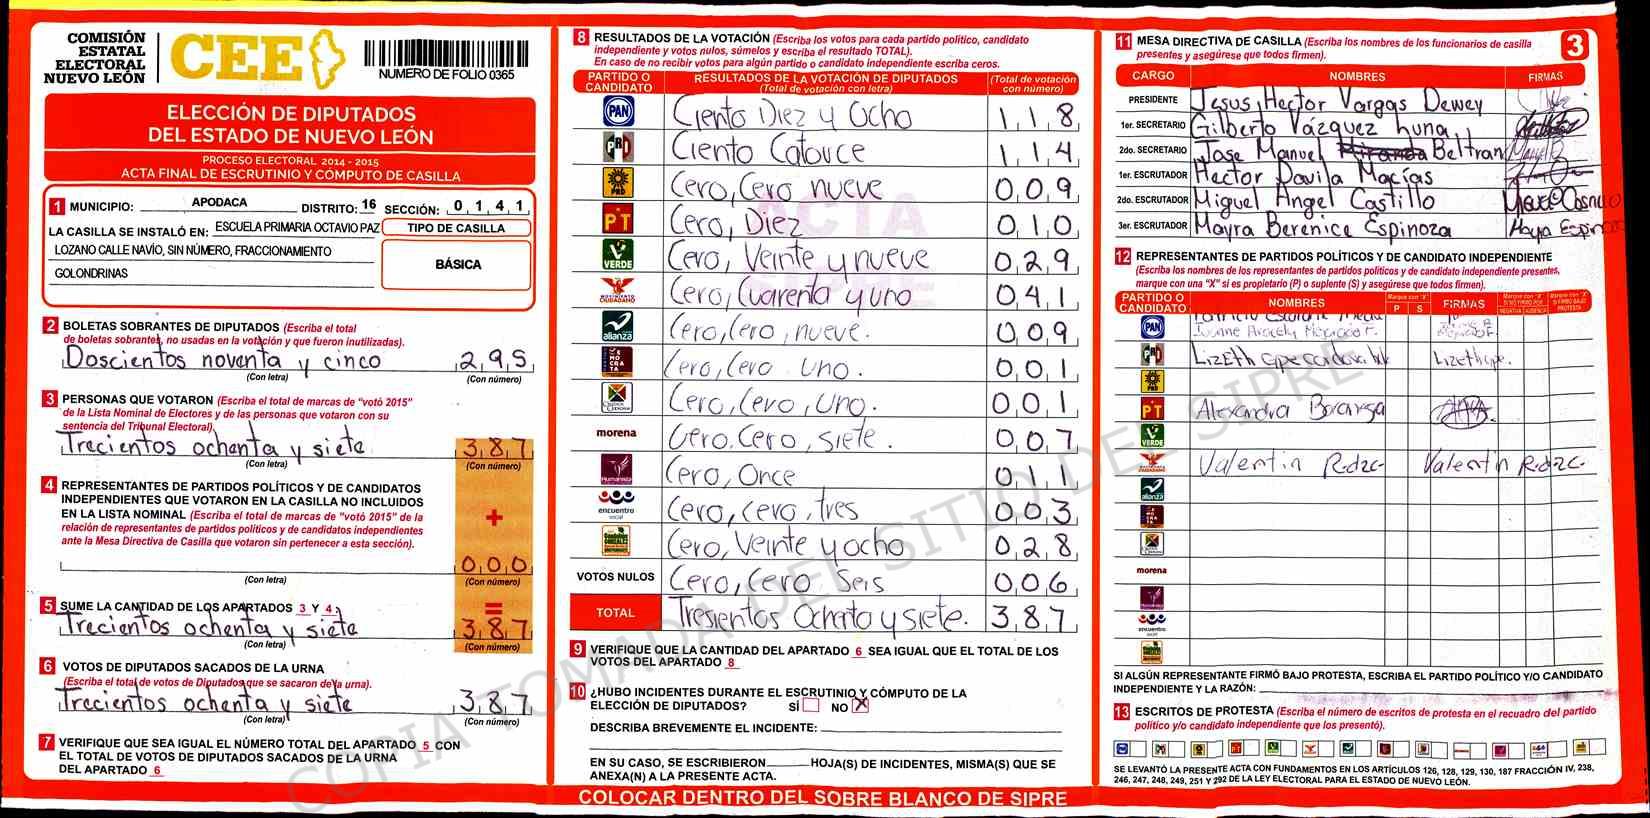 COMISIÓN
ESTATAL
ELECTORAL
NUEVO LEÓN
CEE
NUMERO DE FOLIO 0365
ELECCIÓN DE DIPUTADOS
DEL ESTADO DE NUEVO LEÓN
PROCESO ELECTORAL 2014 - 2015
ACTA FINAL DE ESCRUTINIO Y CÓMPUTO DE CASILLA
1 MUNICIPIO: APODACA DISTRITO: 16 SECCIÓN: 0 1 4 1
LA CASILLA SE INSTALÓ EN: ESCUELA PRIMARIA OCTAVIO PAZ
LOZANO CALLE NAVÍO, SIN NÚMERO, FRACCIONAMIENTO
GOLONDRINAS
TIPO DE CASILLA
BÁSICA
2 BOLETAS SOBRANTES DE DIPUTADOS (Escriba el total
de boletas sobrantes, no usadas en la votación y que fueron inutilizadas).
Doscientos noventa y cinco 2 9 5
(Con letra) (Con número)
3 PERSONAS QUE VOTARON (Escriba el total de marcas de "votó 2015"
de la Lista Nominal de Electores y de las personas que votaron con su
sentencia del Tribunal Electoral).
Trecientos ochenta y siete 3 8 7
(Con letra) (Con número)
4 REPRESENTANTES DE PARTIDOS POLÍTICOS Y DE CANDIDATOS
INDEPENDIENTES QUE VOTARON EN LA CASILLA NO INCLUIDOS
EN LA LISTA NOMINAL (Escriba el total de marcas de "votó 2015" de la
relación de representantes de partidos políticos y de candidatos independientes
ante la Mesa Directiva de Casilla que votaron sin pertenecer a esta sección).
+
0 0 0
(Con letra) (Con número)
=
5 SUME LA CANTIDAD DE LOS APARTADOS 3 Y 4:
Trecientos ochenta y siete 3 8 7
(Con letra) (Con número)
6 VOTOS DE DIPUTADOS SACADOS DE LA URNA
(Escriba el total de votos de Diputados que se sacaron de la urna).
Trecientos ochenta y siete 3 8 7
(Con letra) (Con número)
7 VERIFIQUE QUE SEA IGUAL EL NÚMERO TOTAL DEL APARTADO 5 CON
EL TOTAL DE VOTOS DE DIPUTADOS SACADOS DE LA URNA
DEL APARTADO 6
8 RESULTADOS DE LA VOTACIÓN (Escriba los votos para cada partido político, candidato
independiente y votos nulos, súmelos y escriba el resultado TOTAL).
En caso de no recibir votos para algún partido o candidato independiente escriba ceros.
PARTIDO O CANDIDATO RESULTADOS DE LA VOTACIÓN DE DIPUTADOS (Total de votación con letra) (Total de votación con número)
PAN Ciento Diez y Ocho 1 1 8
PRI Ciento Catorce 1 1 4
PRD Cero, Cero nueve 0 0 9
PT Cero, Diez 0 1 0
VERDE Cero, Veinte y nueve 0 2 9
MOVIMIENTO CIUDADANO Cero, Cuarenta y uno 0 4 1
alianza Cero, Cero, nueve. 0 0 9
DEMOCRATA Cero, Cero uno. 0 0 1
Cero, Cero, uno. 0 0 1
morena Cero, Cero, siete. 0 0 7
Humanista Cero, Once 0 1 1
encuentro social Cero, cero, tres 0 0 3
Cero, Veinte y ocho 0 2 8
VOTOS NULOS Cero, Cero Seis 0 0 6
TOTAL Tresientos Ochenta y siete. 3 8 7
9 VERIFIQUE QUE LA CANTIDAD DEL APARTADO 6 SEA IGUAL QUE EL TOTAL DE LOS
VOTOS DEL APARTADO 8
10 ¿HUBO INCIDENTES DURANTE EL ESCRUTINIO Y CÓMPUTO DE LA
ELECCIÓN DE DIPUTADOS? SÍ NO X
DESCRIBA BREVEMENTE EL INCIDENTE:
EN SU CASO, SE ESCRIBIERON HOJA(S) DE INCIDENTES, MISMA(S) QUE SE
ANEXA(N) A LA PRESENTE ACTA.
COLOCAR DENTRO DEL SOBRE BLANCO DE SIPRE
11 MESA DIRECTIVA DE CASILLA (Escriba los nombres de los funcionarios de casilla
presentes y asegúrese que todos firmen).
3
CARGO NOMBRES FIRMAS
PRESIDENTE Jesus, Hector Vargas Dewey
1er. SECRETARIO Gilberto Vázquez Luna
2do. SECRETARIO Jose Manuel Miranda Beltran
1er. ESCRUTADOR Hector Davila Macías
2do. ESCRUTADOR Miguel Angel Castillo Miguel Castillo
3er. ESCRUTADOR Mayra Berenice Espinoza Mayra Espinoza
12 REPRESENTANTES DE PARTIDOS POLÍTICOS Y DE CANDIDATO INDEPENDIENTE
(Escriba los nombres de los representantes de partidos políticos y de candidato independiente presentes,
marque con una "X" si es propietario (P) o suplente (S) y asegúrese que todos firmen).
PARTIDO O CANDIDATO NOMBRES Marque con "X" P S FIRMAS Marque con "X" SI NO FIRMÓ POR NEGATIVA AUSENCIA Marque con "X" SI FIRMÓ BAJO PROTESTA
PAN
PRI Lizeth
PRD
PT Alexandra
VERDE
MOVIMIENTO CIUDADANO Valentin Rodzc Valentin Rodzc.
alianza
DEMOCRATA
morena
encuentro social
SI ALGÚN REPRESENTANTE FIRMÓ BAJO PROTESTA, ESCRIBA EL PARTIDO POLÍTICO Y/O CANDIDATO
INDEPENDIENTE Y LA RAZÓN:
13 ESCRITOS DE PROTESTA (Escriba el número de escritos de protesta en el recuadro del partido
político y/o candidato independiente que los presentó).
SE LEVANTÓ LA PRESENTE ACTA CON FUNDAMENTOS EN LOS ARTÍCULOS 126, 128, 129, 130, 187 FRACCIÓN IV, 238,
246, 247, 248, 249, 251 Y 292 DE LA LEY ELECTORAL PARA EL ESTADO DE NUEVO LEÓN.
ACTA
SIPRE
COPIA TOMADA DEL SITIO DEL SIPRE